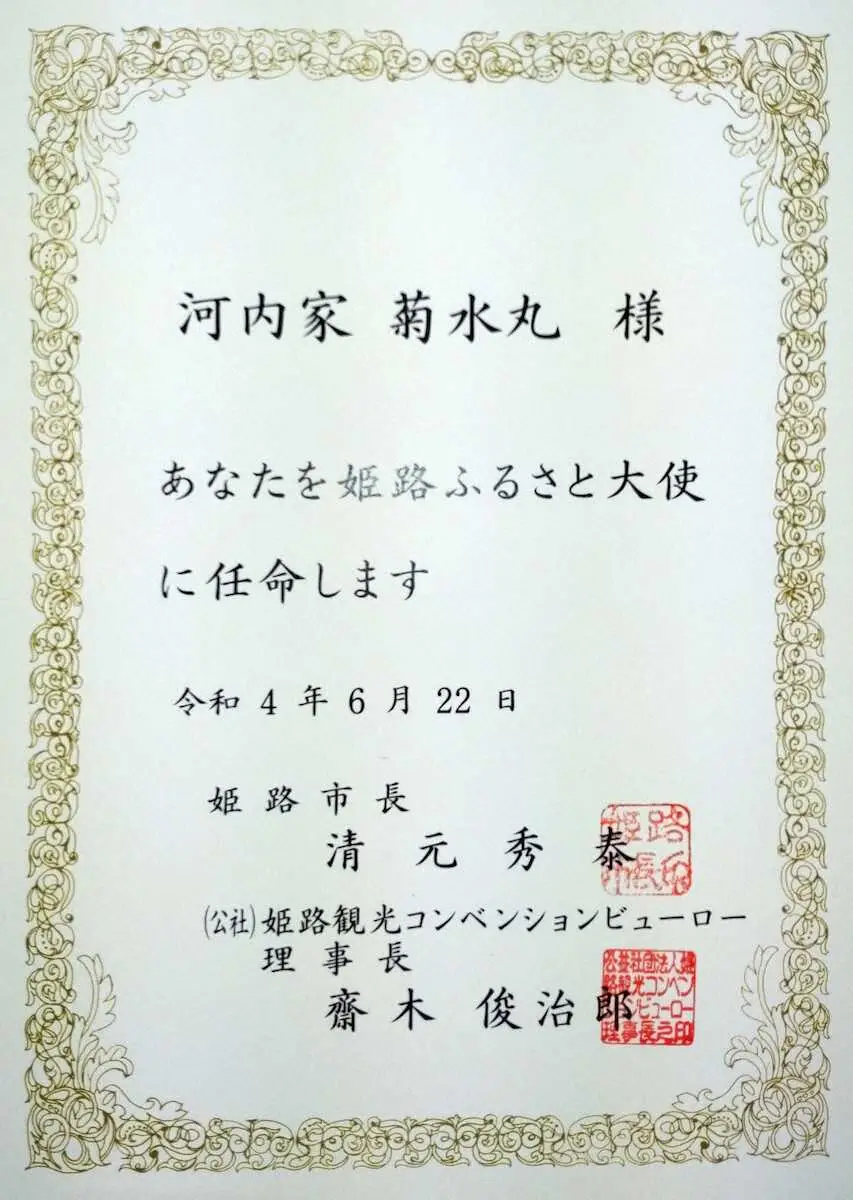 河内家 菊水丸 様
あなたを姫路ふるさと大使
に任命します
令和 4 年 6 月 22 日
姫路市長
清元秀泰
(公社)姫路観光コンベンションビューロー
理事長
齋木 俊治郎
公益社団法人姫
路観光コンベン
ションビューロー
理事長之印